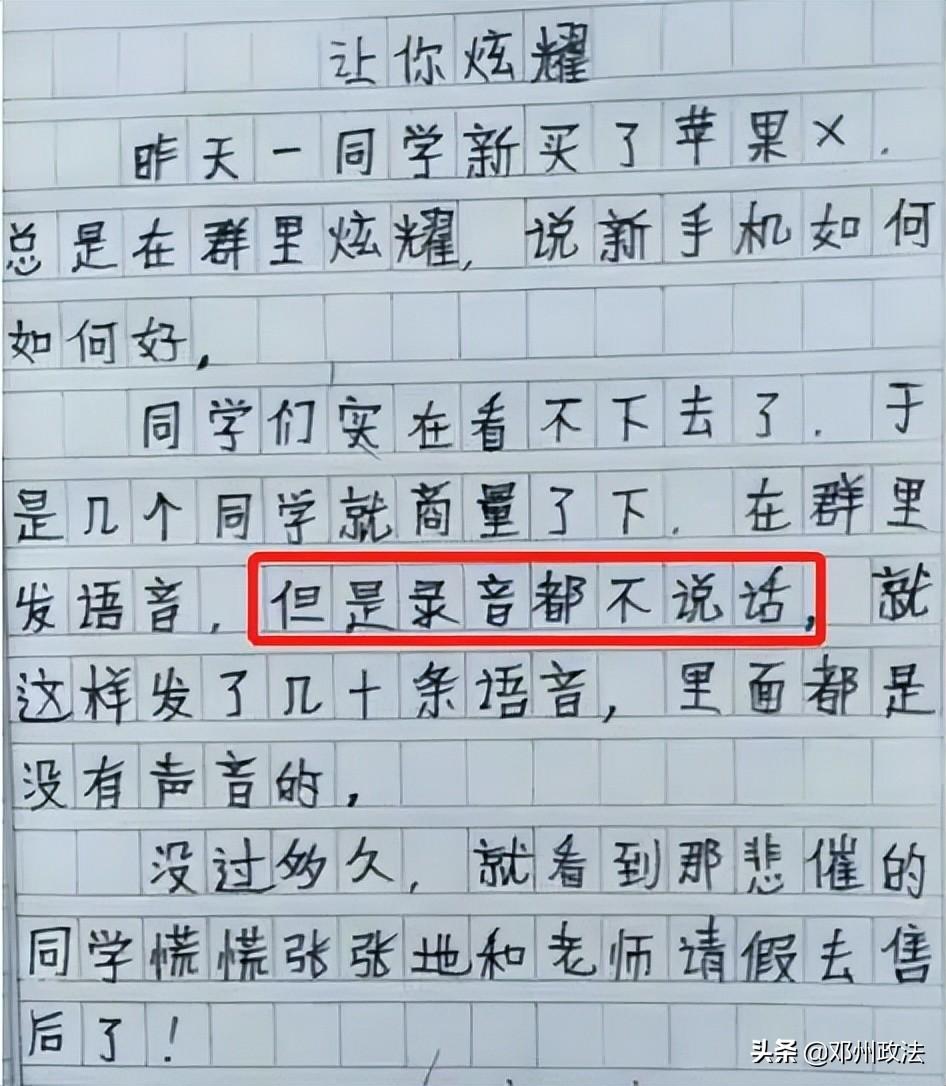 让你炫耀
昨天一同学新买了苹果X.
总是在群里炫耀,说新手机如何
如何好,
同学们实在看不下去了.于
是几个同学就商量了下.在群里
发语音,但是录音都不说话,就
这样发了几十条语音,里面都是
没有声音的,
没过多久,就看到那悲催的
同学慌慌张张地和老师请假去售
后了!
头条 @邓州政法